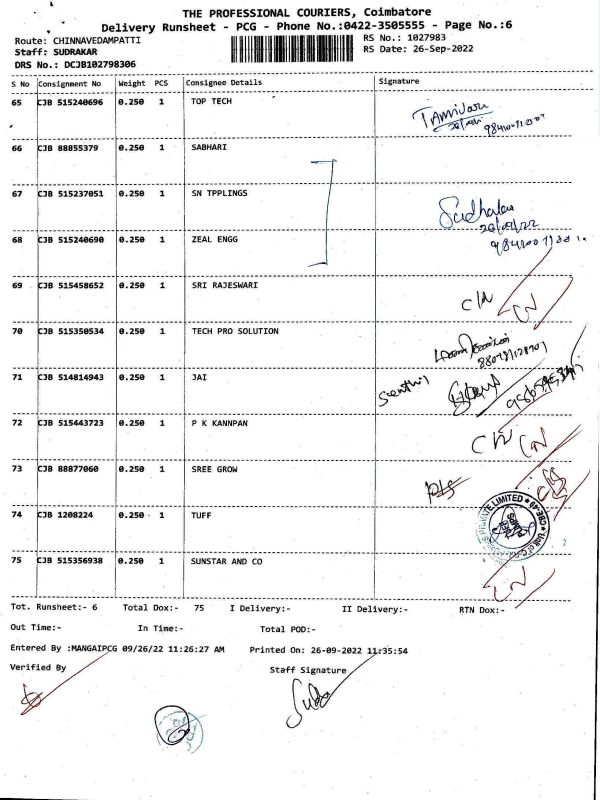 THE PROFESSIONAL COURIERS, Coimbatore
Delivery Runsheet - PCG - Phone No.:0422-3505555 - Page No.:6
Route: CHINNAVEDAMPATTI RS No.: 1027983
Staff: SUDRAKAR RS Date: 26-Sep-2022
DRS No.: DCJB102798306
S No Consignment No Weight PCS Consignee Details Signature
65 CJB 515240696 0.250 1 TOP TECH
66 CJB 88855379 0.250 1 SABHARI
67 CJB 515237051 0.250 1 SN TPPLINGS
68 CJB 515240690 0.250 1 ZEAL ENGG
69 CJB 515458652 0.250 1 SRI RAJESWARI
70 CJB 515350534 0.250 1 TECH PRO SOLUTION
71 CJB 514814943 0.250 1 JAI
72 CJB 515443723 0.250 1 P K KANNPAN
73 CJB 88877060 0.250 1 SREE GROW
74 CJB 1208224 0.250 1 TUFF
75 CJB 515356938 0.250 1 SUNSTAR AND CO
Tot. Runsheet:- 6 Total Dox:- 75 I Delivery:- II Delivery:- RTN Dox:-
Out Time:- In Time:- Total POD:-
Entered By :MANGAIPCG 09/26/22 11:26:27 AM Printed On: 26-09-2022 11:35:54
Verified By Staff Signature